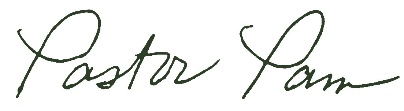 Pastor Pam